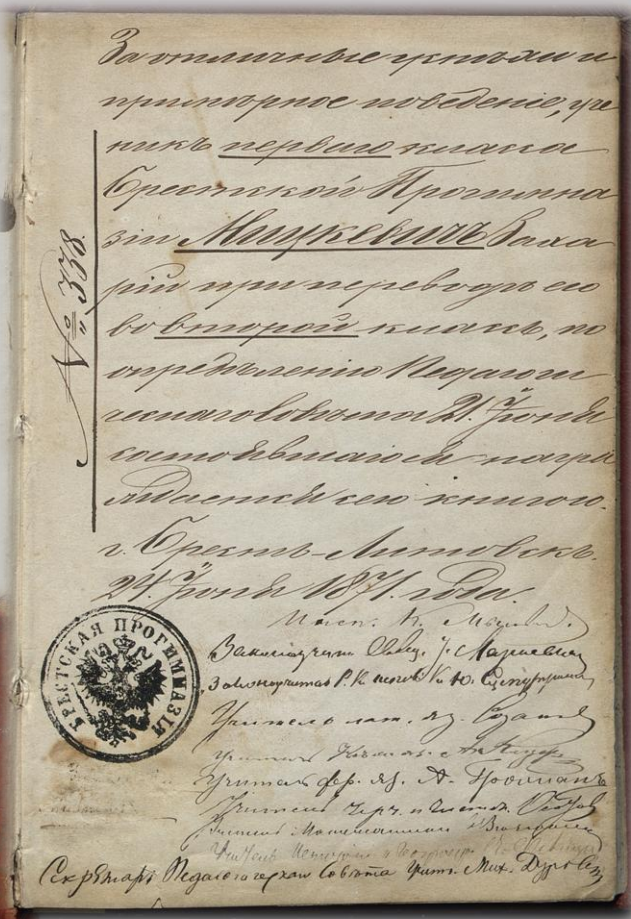 За отличные успѣхи и
примѣрное поведеніе, уче
никъ перваго класса
Брестской Прогимна
зіи Мицкевичъ Заха
рій при переводѣ его
во второй классъ, по
опредѣленію Педагоги
ческаго Совѣта 21 Іюня
состоявшагося награ
ждается сею книгою.
г. Брестъ-Литовскъ.
24 Іюня 1871 года.
№ 338
БРЕСТСКАЯ ПРОГИМНАЗІЯ
Инсп. К.
Законоучитель Свящ. І.
Законоучитель Р. К. исповѣ. Кс. Ю.
Учитель лат. яз.
Учитель
Учитель фр. яз. А. Гросманъ
Учитель черч. и чистоп.
Учитель Математики
Учитель Исторіи и Географіи
Секретарь Педагогическаго Совѣта Учит. Мих.